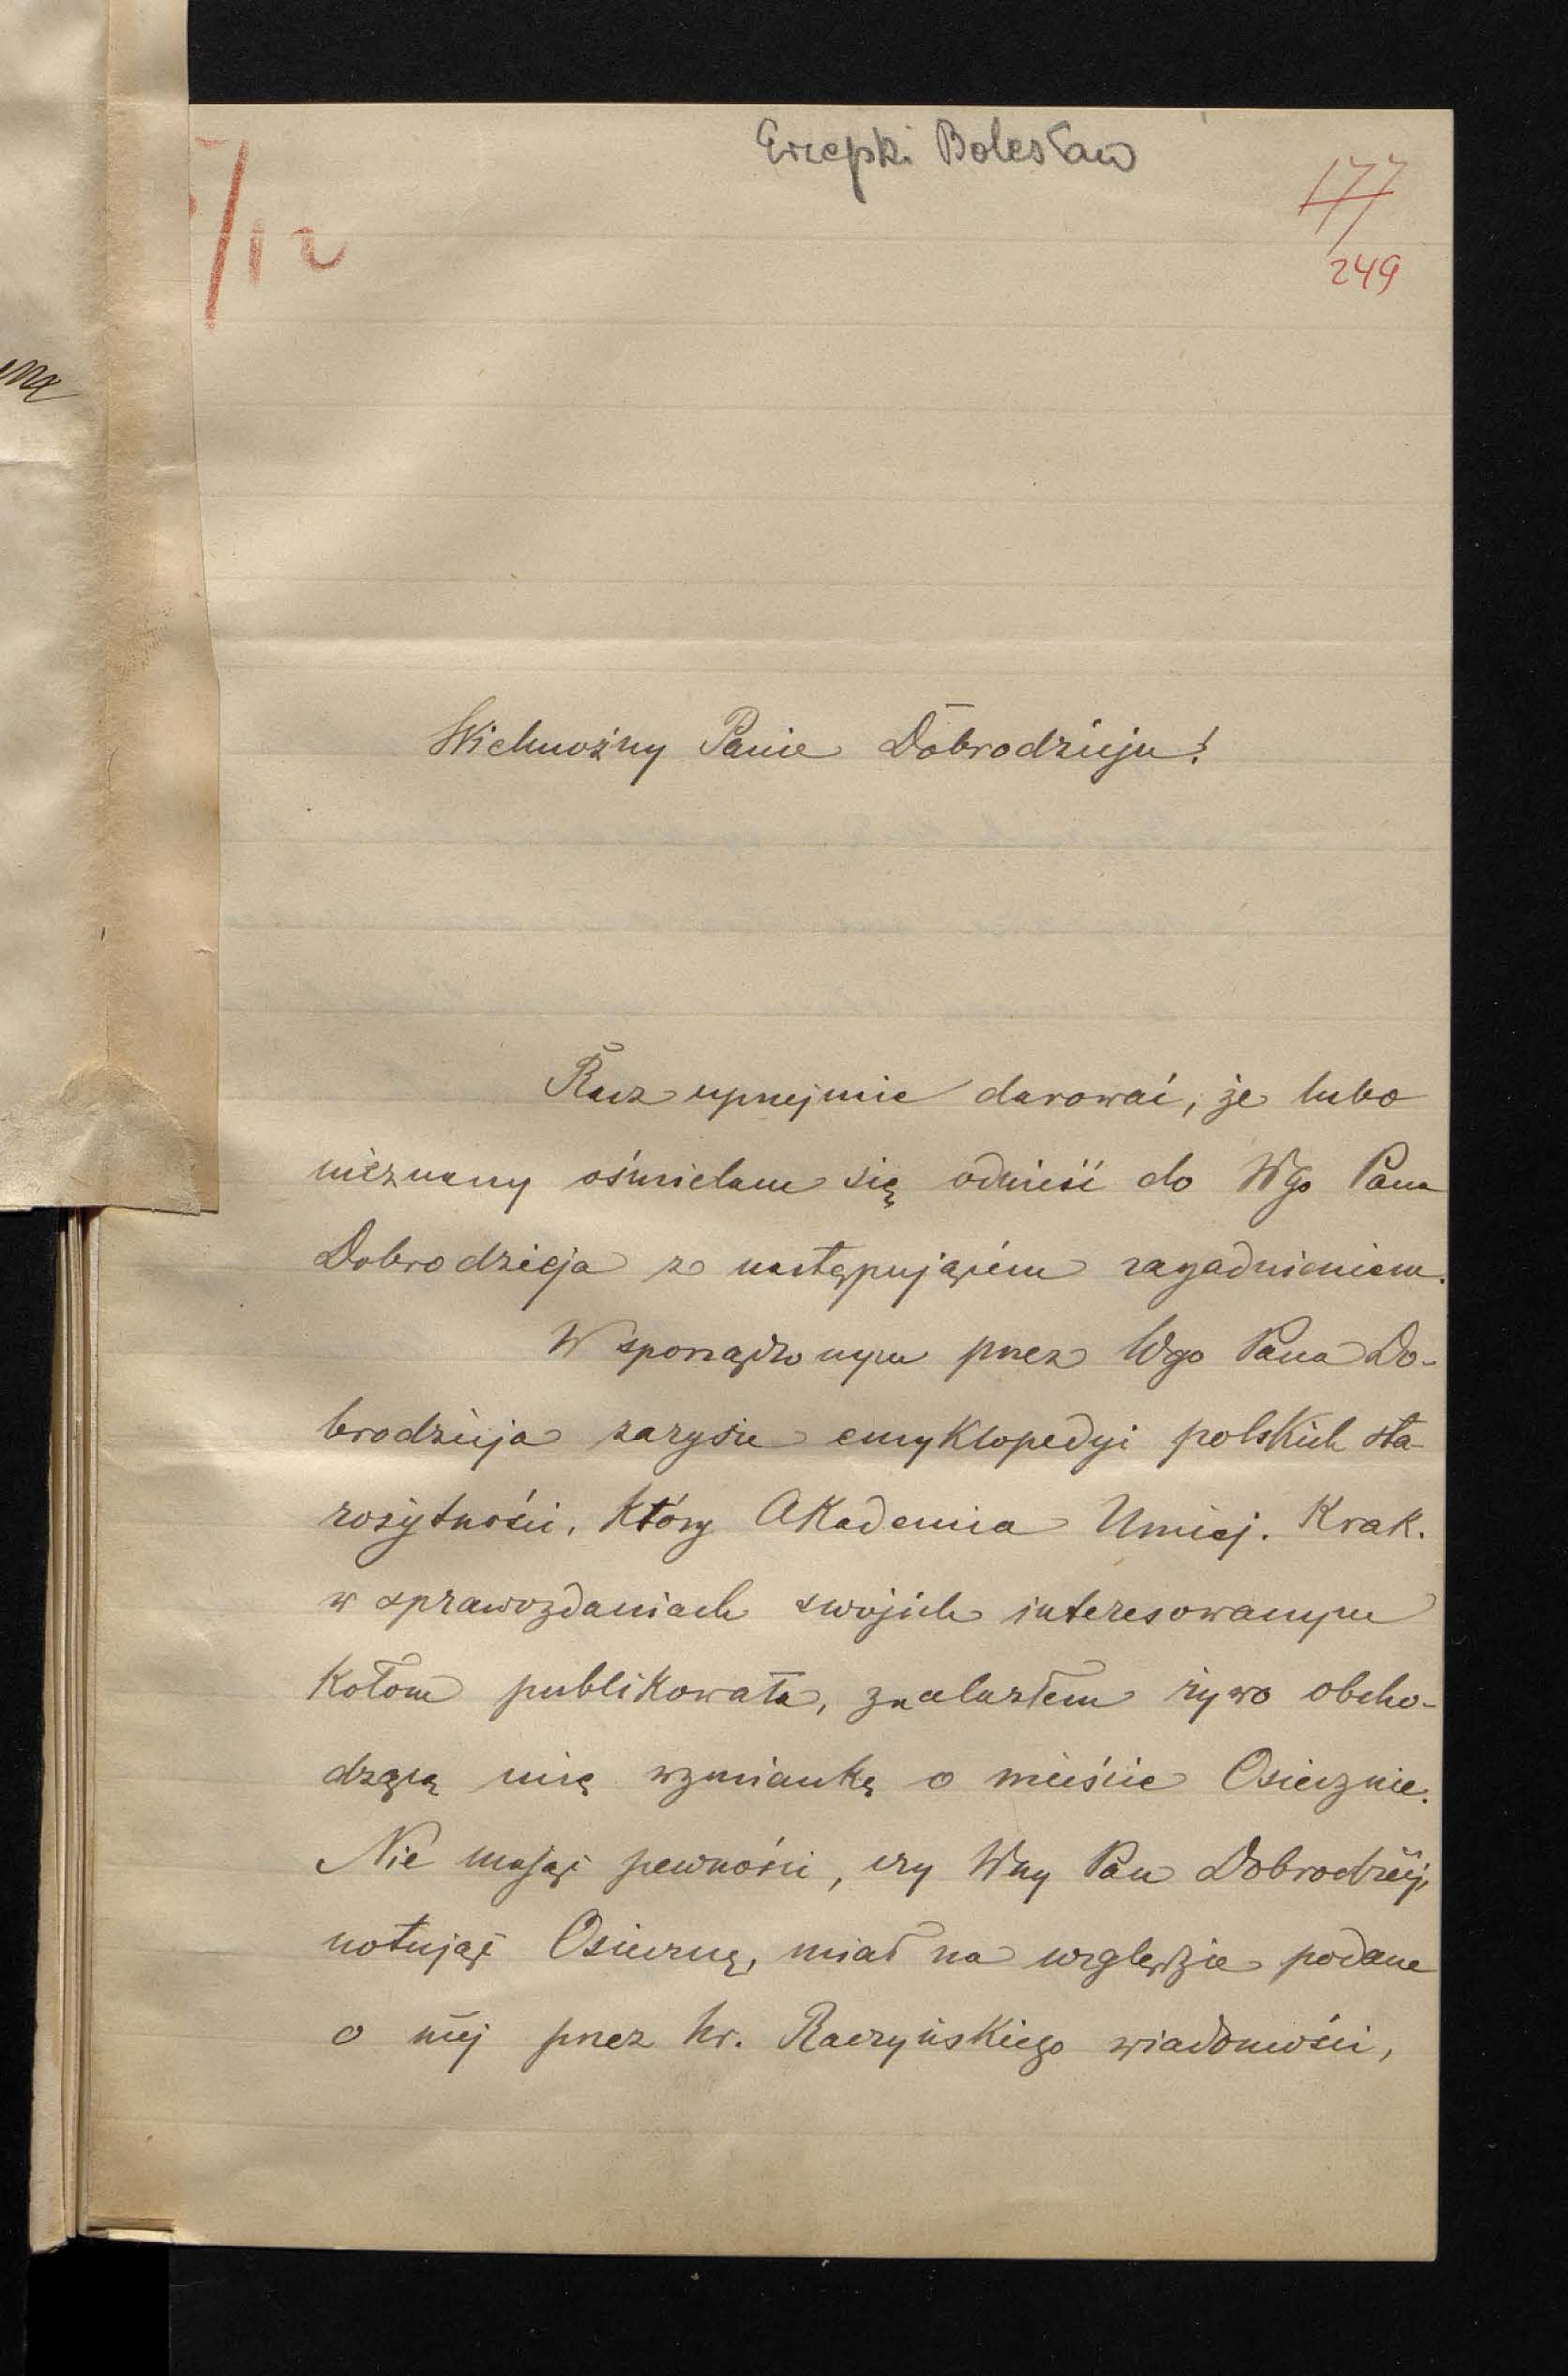 Erzepki Bolesław
177
249
/12
Wielmożny Panie Dobrodzieju!
Racz uprzejmie darować, że lubo
nieznany ośmielam się odnieść do Wgo Pana
Dobrodzieja z następującém zagadnieniem.
W sporządzonym przez Wgo Pana Do-
brodzieja zarysie encyklopedyi polskich sta-
rożytności, który Akademia Umiej. Krak.
w sprawozdaniach swojich interesowanym
kołom publikowała, znalazłem żywo obcho-
dzącą mię wzmiankę o mieście Osiecznie.
Nie mając pewności, czy Wny Pan Dobrodziéj,
notując Osieczną, miał na względzie podane
o niéj przez hr. Raczyńskiego wiadomości,